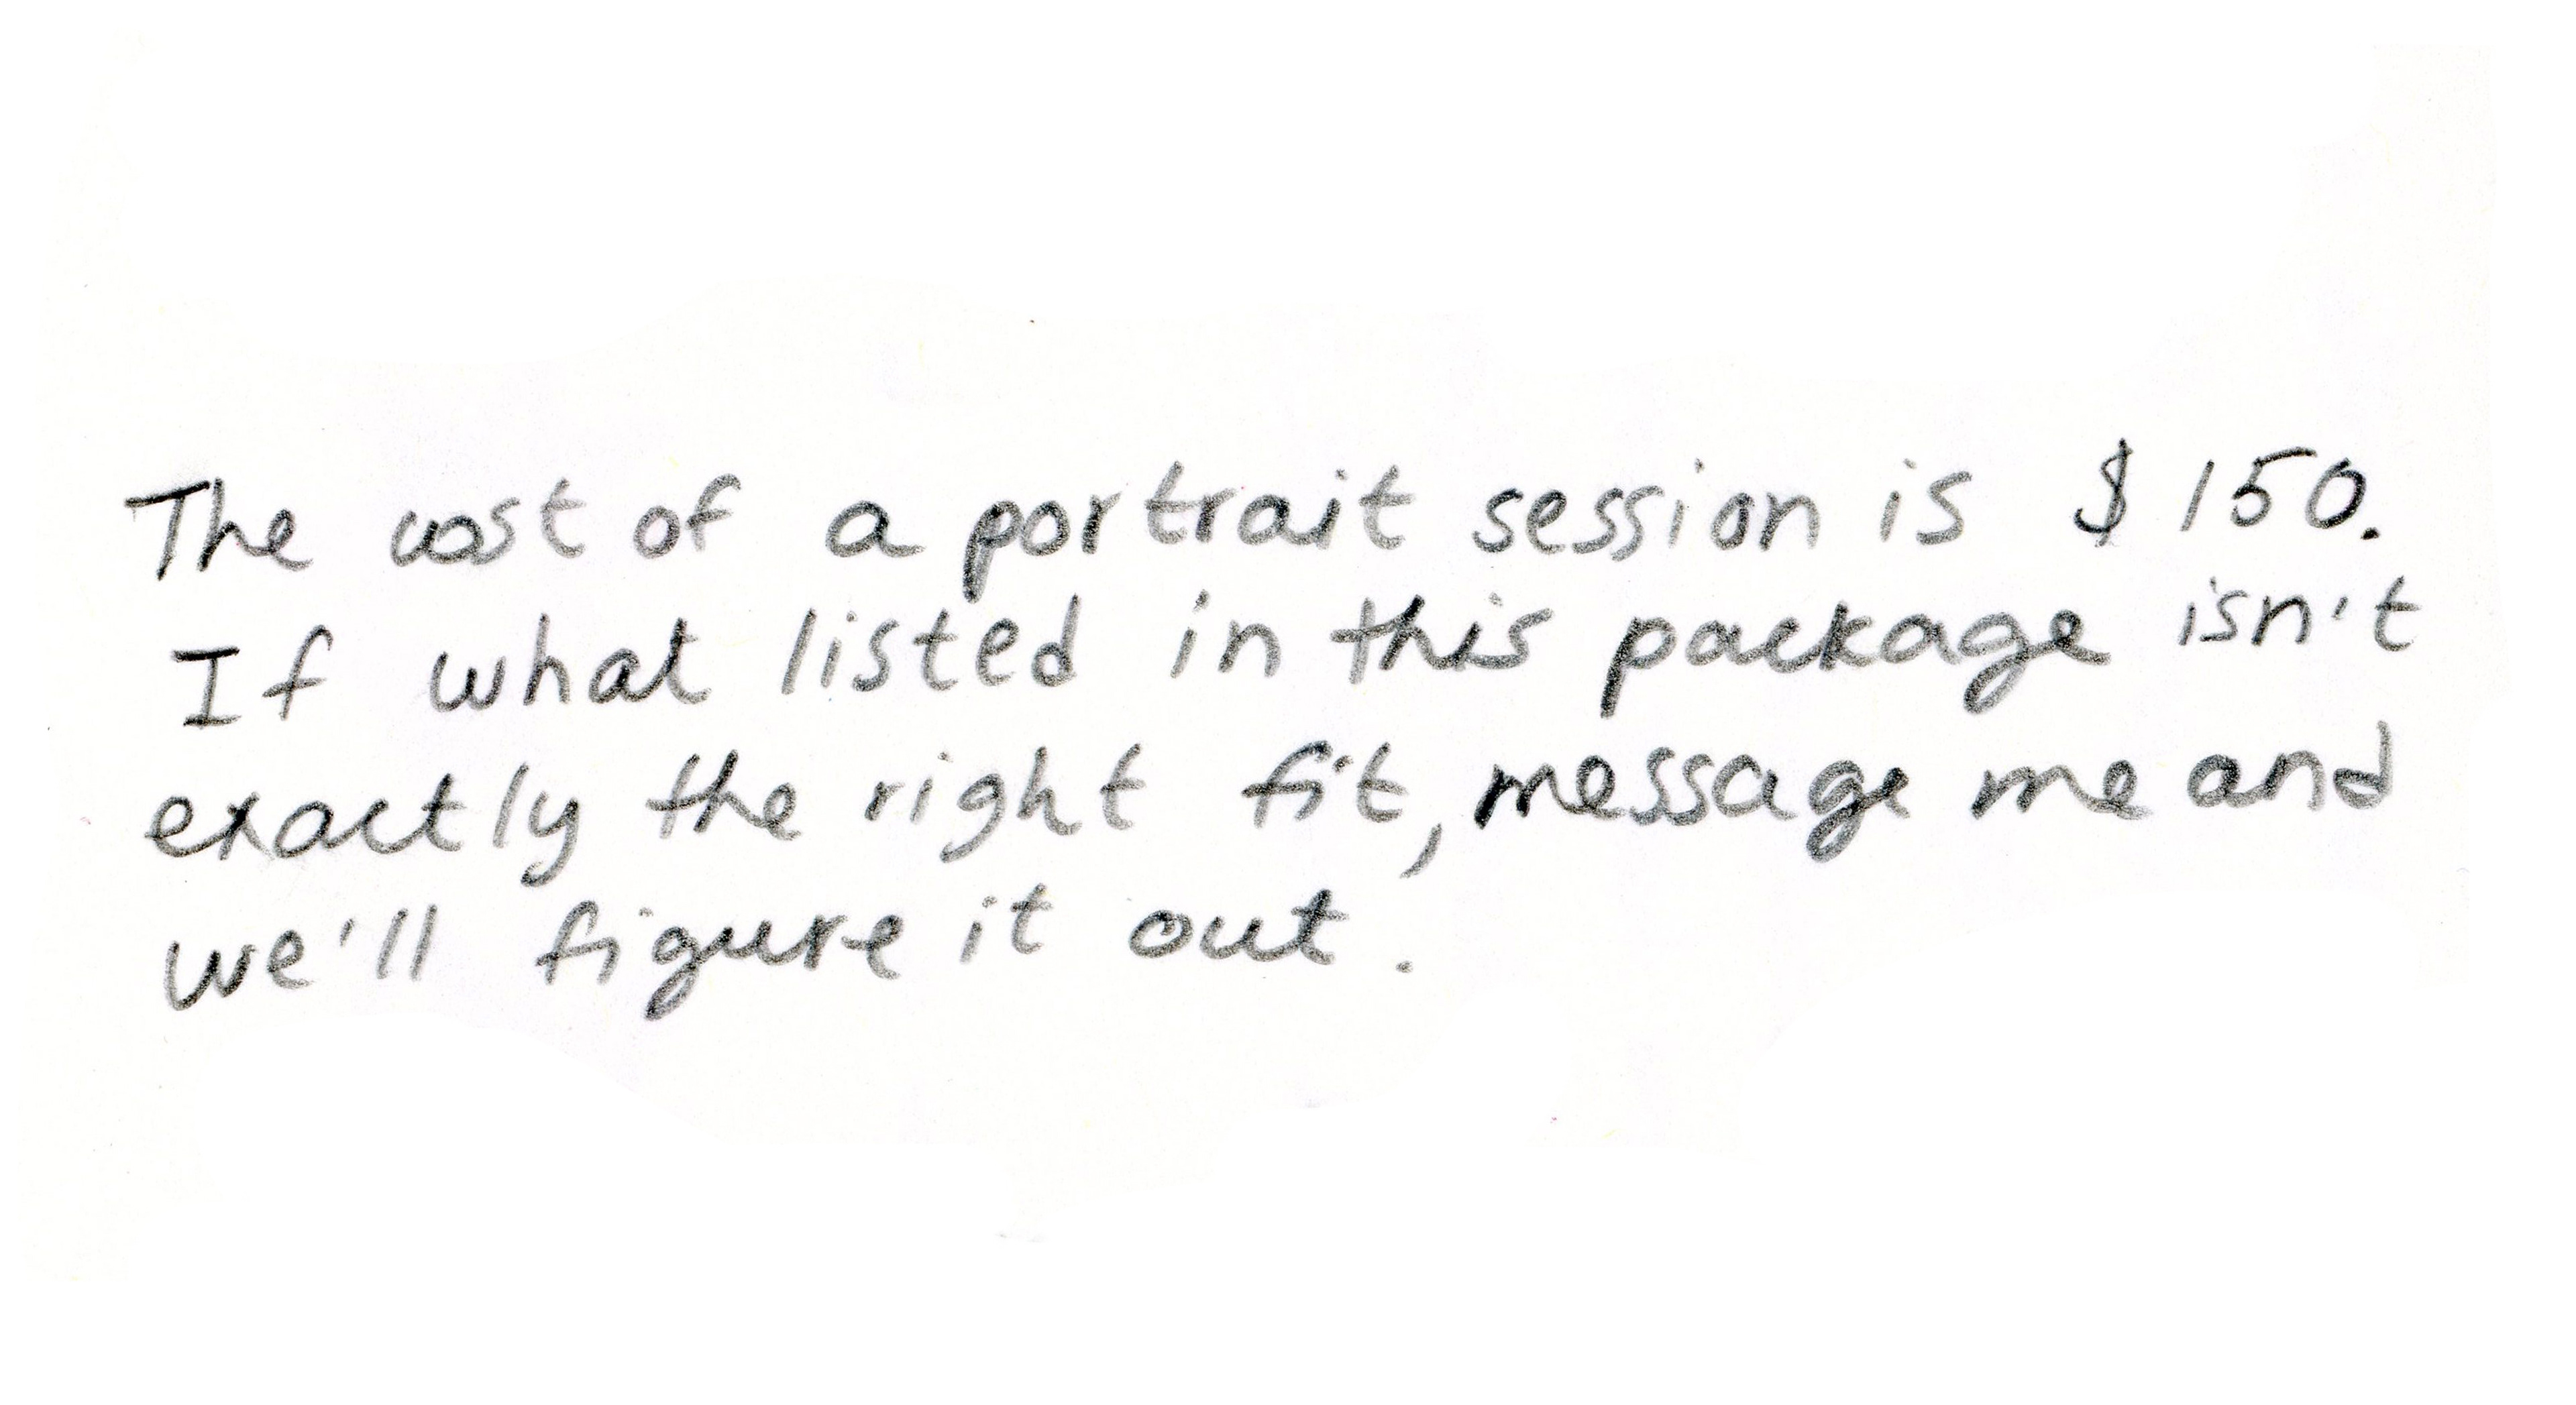 The cost of a portrait session is $150.
If what listed in this package isn't
exactly the right fit, message me and
we'll figure it out.